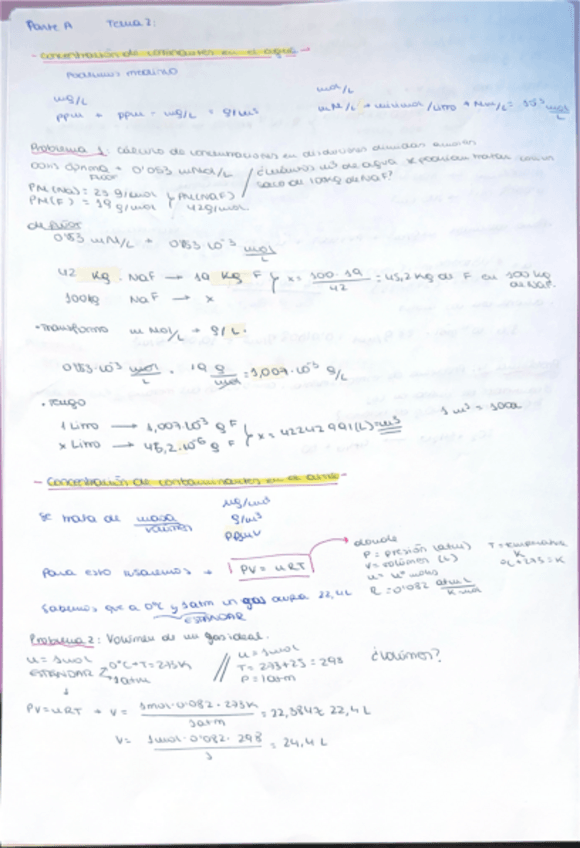 Parte A Tema 2:
- Concentración de contaminantes en el agua -
Podemos medirlo
mg/L mol/L
ppm → ppm = mg/L = g/m³ mM/L → milimol/Litro → mM/L = 10⁻³ mol/L
Problema 1: cálculo de concentraciones en disoluciones diluidas acuosas
0'053 mMol/L / ¿cuántos m³ de agua se podrían tratar con un
Fluor saco de 100kg de NaF?
PM(Na) = 23 g/mol } PM(NaF)
PM(F) = 19 g/mol 42g/mol
de flúor
0'053 mM/L → 0'053·10⁻³ mol/L
42 Kg NaF → 19 Kg F } x = 100·19/42 = 45,2 kg de F en 100kg de NaF.
100kg NaF → x
• Transformo mMol/L → g/L.
0'053·10⁻³ mol/L · 19 g/mol = 1,007·10⁻³ g/L
• Tengo
1 Litro → 1,007·10⁻³ g F } x = 42242991(L) = m³ 1 m³ = 1000L
x Litro → 45,2·10⁻⁶ g F
- Concentración de contaminantes en el aire -
Se trata de masa/volumen µg/m³
g/m³
ppmv
Para esto usaremos → PV = nRT
donde
P = presión (atm) T = temperatura K
V = volumen (L) 0ºC = 273 K
n = nº moles
R = 0'082 atm L/K mol
Sabemos que a 0ºC y 1atm un gas ocupa 22,4L
ESTÁNDAR
Problema 2: Volumen de un gas ideal.
n = 1mol // n = 1mol ¿Volumen?
ESTÁNDAR 0ºC → T = 273K T = 273+25 = 298
1atm P = 1atm
PV = nRT → V = 1mol·0'082·273K/1atm = 22,384 ≈ 22,4 L
V = 1mol·0'082·298/1 = 24,4 L